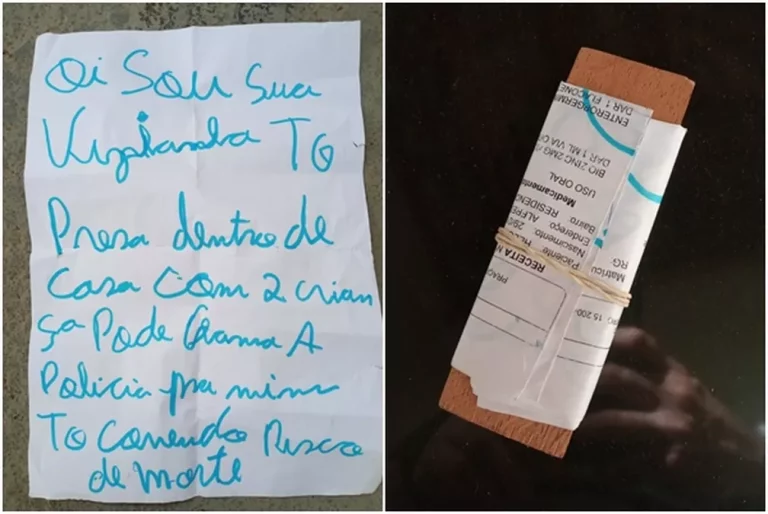 Oi Sou Sua
TO
Presa dentro de
Casa Com 2 crian
ça Pode Chama A
Policia pra mim
To Correndo Risco
de morte
RECEITA M
Paciente:
Nascimento: 29/
Endereço: ALFRE
Bairro: RESIDENC
Medicamento
USO ORAL
BIO ZINC 2MG/
DAR 1 ML VIA O
ENTEROGERMI
DAR 1 FLACONE
PRAÇ
15.200-
RG:
Matrícu